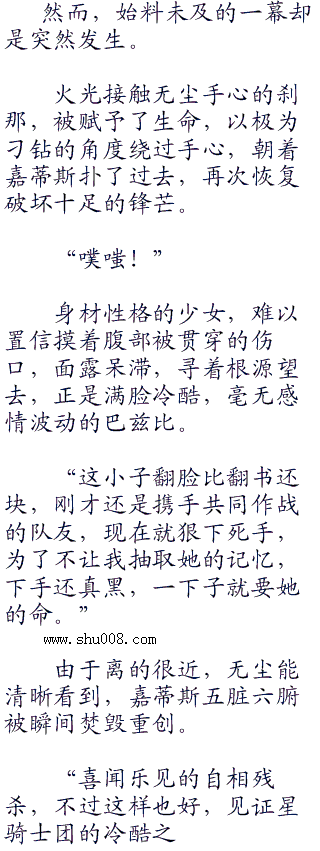 然而，始料未及的一幕却
是突然发生。
火光接触无尘手心的刹
那，被赋予了生命，以极为
刁钻的角度绕过手心，朝着
嘉蒂斯扑了过去，再次恢复
破坏十足的锋芒。
“噗嗤！”
身材性格的少女，难以
置信摸着腹部被贯穿的伤
口，面露呆滞，寻着根源望
去，正是满脸冷酷，毫无感
情波动的巴兹比。
“这小子翻脸比翻书还
块，刚才还是携手共同作战
的队友，现在就狠下死手，
为了不让我抽取她的记忆，
下手还真黑，一下子就要她
的命。”
www.shu008.com
由于离的很近，无尘能
清晰看到，嘉蒂斯五脏六腑
被瞬间焚毁重创。
“喜闻乐见的自相残
杀，不过这样也好，见证星
骑士团的冷酷之